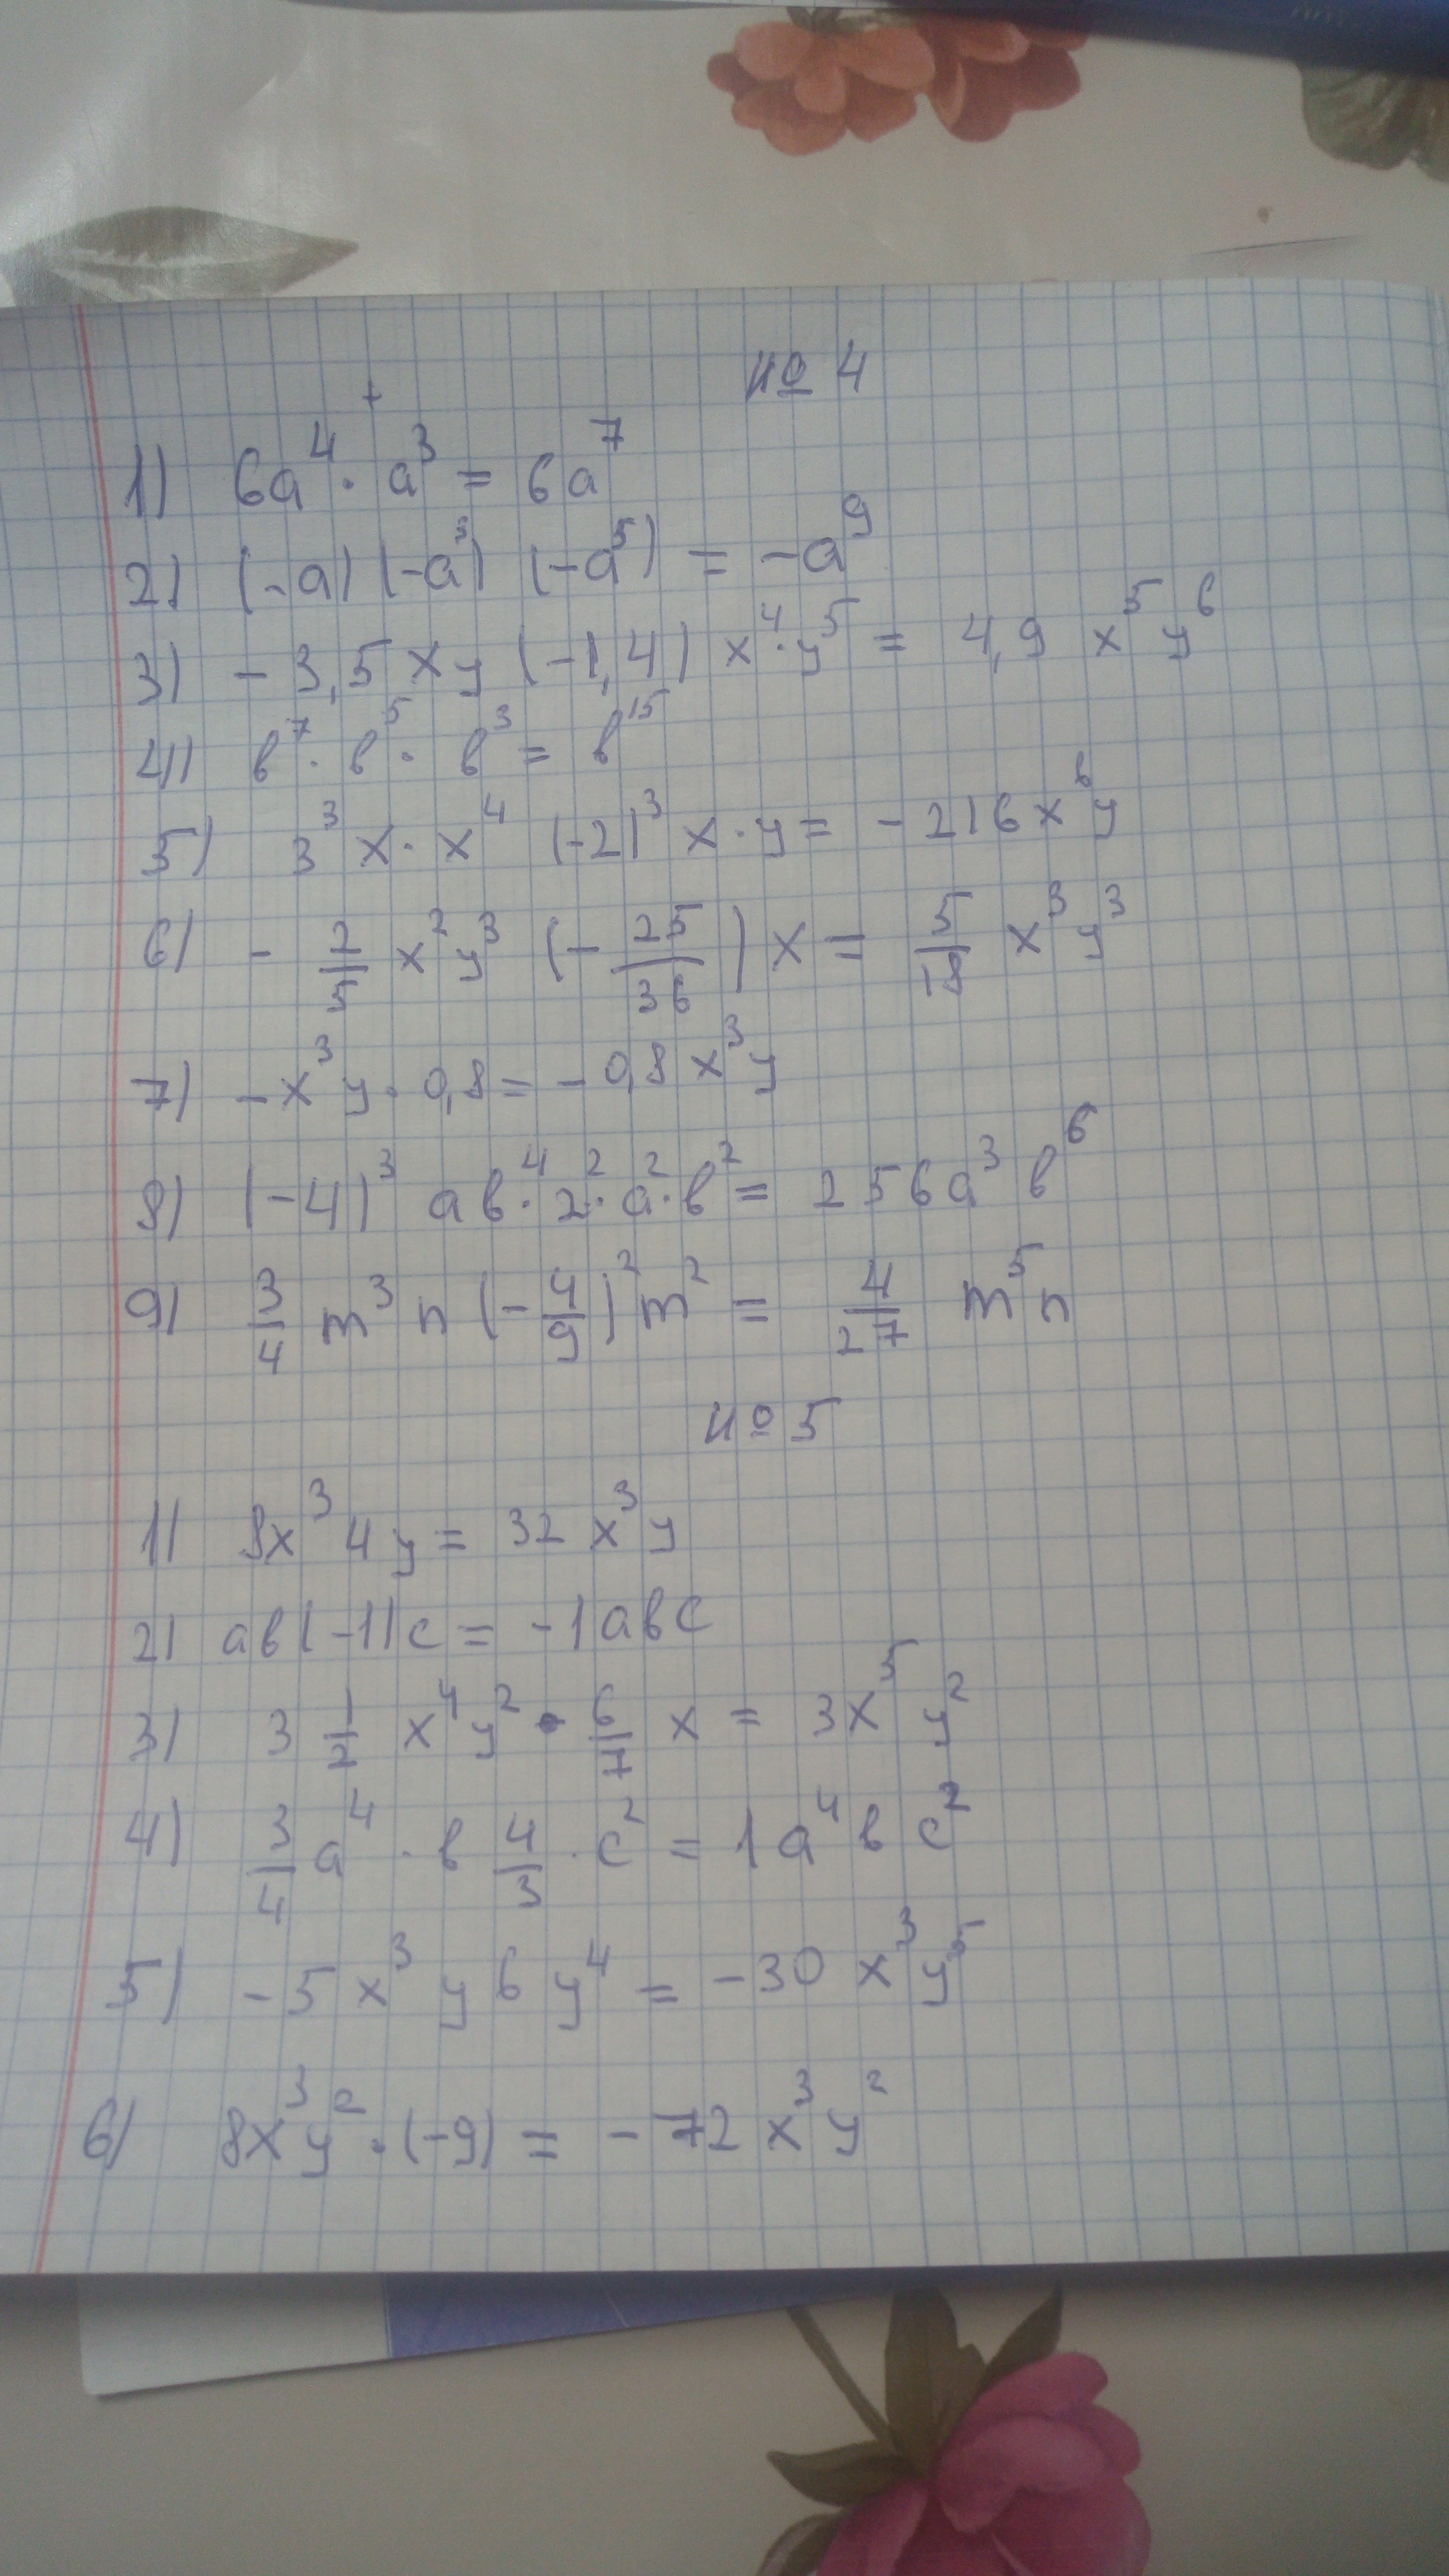 № 4
1) 6a⁴ · a³ = 6a⁷
2) (-a) (-a³) (-a⁵) = -a⁹
3) - 3,5 xy (-1,4) x⁴ · y⁵ = 4,9 x⁵ y⁶
4) в⁷ · в⁵ · в³ = в¹⁵
5) 3³ x · x⁴ (-2)³ x · y = - 216 x⁶ y
6) - 2/5 x² y³ (- 25/36) x = 5/18 x³ y³
7) - x³ y · 0,8 = - 0,8 x³ y
8) (-4)³ aв⁴ · 2² · a² · в² = 256 a³ в⁶
9) 3/4 m³ n (- 4/9)² m² = 4/27 m⁵ n
№ 5
1) 8x³ 4 y = 32 x³ y
2) aв(-1)c = -1aвc
3) 3 1/2 x⁴ y² · 6/7 x = 3x⁵ y²
4) 3/4 a⁴ · в 4/3 · c² = 1 a⁴ в c²
5) - 5 x³ y 6 y⁴ = - 30 x³ y⁵
6) 8x³ y² · (-9) = - 72 x³ y²